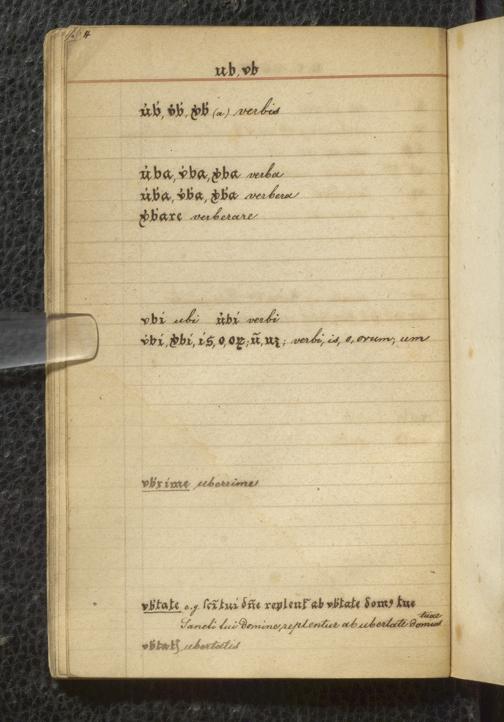 ub, vb
ub̄, vb̄, vb̄ (a) verbis
u̇ba, v̇ba, v̇ba verba
u̇b̄a, v̇b̄a, v̇b̄a verbera
v̇b̄are verberare
vbi ubi u̇bi verbi
v̇bi, v̇bi, is, o, oꝝ; ū, uʒ; verbi, is, o, orum; um
vb̄rime uberrime
vb̄tate e.g. sc̄i tui dn̄e replent᷑ ab vb̄tate domꝰ tue
tuae
Sancti tui domine, replentur ab ubertate domus
vb̄tat᷑ ubertatis